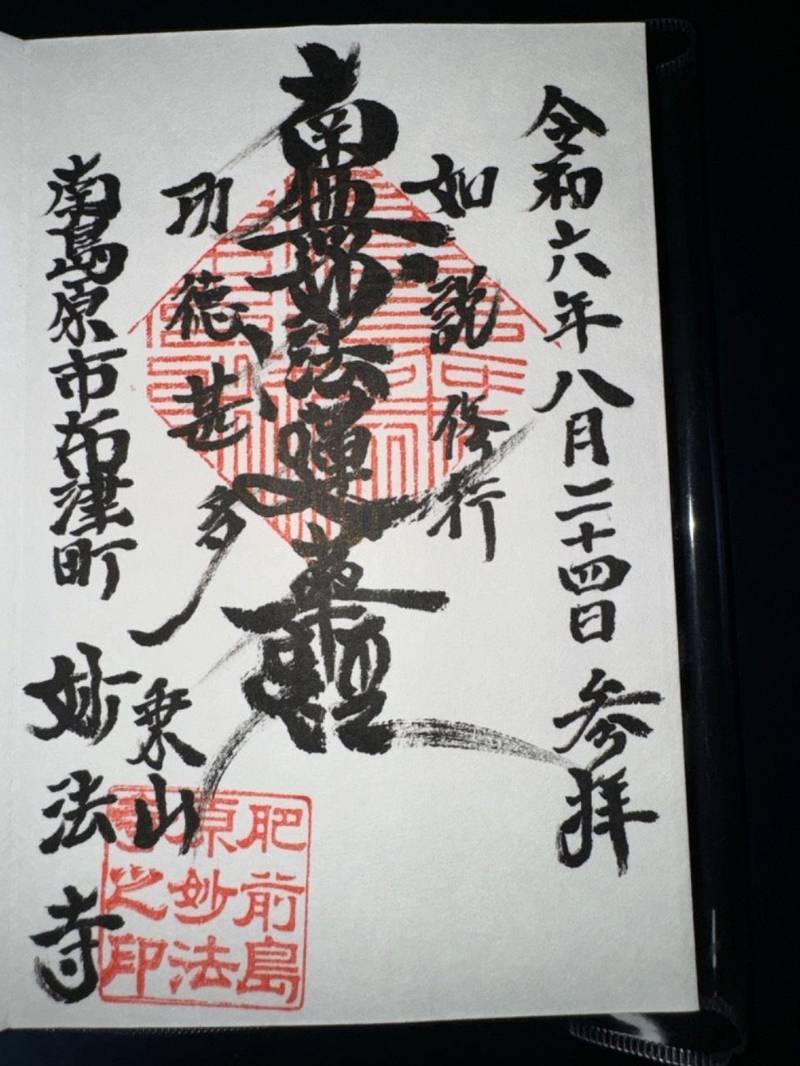 令和六年八月二十四日 参拝
如説修行
南無妙法蓮華經
功徳甚多
一乗山
南島原市布津町 妙法寺
肥前島
原妙法
寺之印